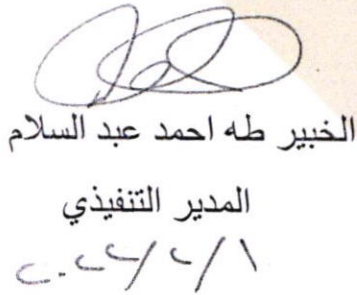 الخبير طه احمد عبد السلام
المدير التنفيذي
٢٠٢٢/٢/١